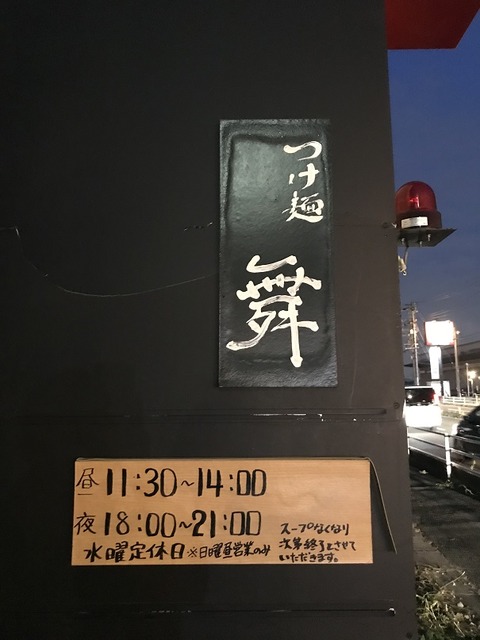 つけ麺
舞
昼 11:30~14:00
夜 18:00~21:00
水曜定休日 ※日曜昼営業のみ
スープなくなり
次第終了とさせて
いただきます。